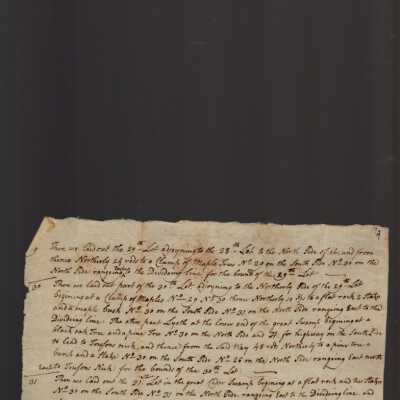 Then we laid out the 29th Lot adjoyning to the 28th Lot to the North Side of the and from
thence Northerly 24 rods to a Clump of Maple Trees No 29 on the South Side No 30 on the
North Side ranging to the Dividing line for the bounds of the 29th Lot
30 Then we laid out part of the 30th Lot adjoyning to the Northerly Side of the 29 Lot
begining at a Clump of Maples No 29 No 30 thence Northerly to a flat rock & Stake
and a maple bush No 30 on the South Side No 31 on the North Side ranging East to the
Dividing line. The other part Lyeth at the lower end of the great Swamp begining at a
black oak Tree and a pine Tree No 30 on the North Side and H. for highway on the South Side
to lead to neck, and thence from the Said Way 48 rods Northerly to a pine tree a
birch and a Stake No 30 on the South Side No 26 on the North Side ranging East north
East to neck for the bounds of the 30th Lot
31 Then we laid out the 31st Lot in the great Ceder Swamp begining at a flat rock and two Stakes
No 31 on the South Side No 31 on the North Side ranging East to the Dividing line, and